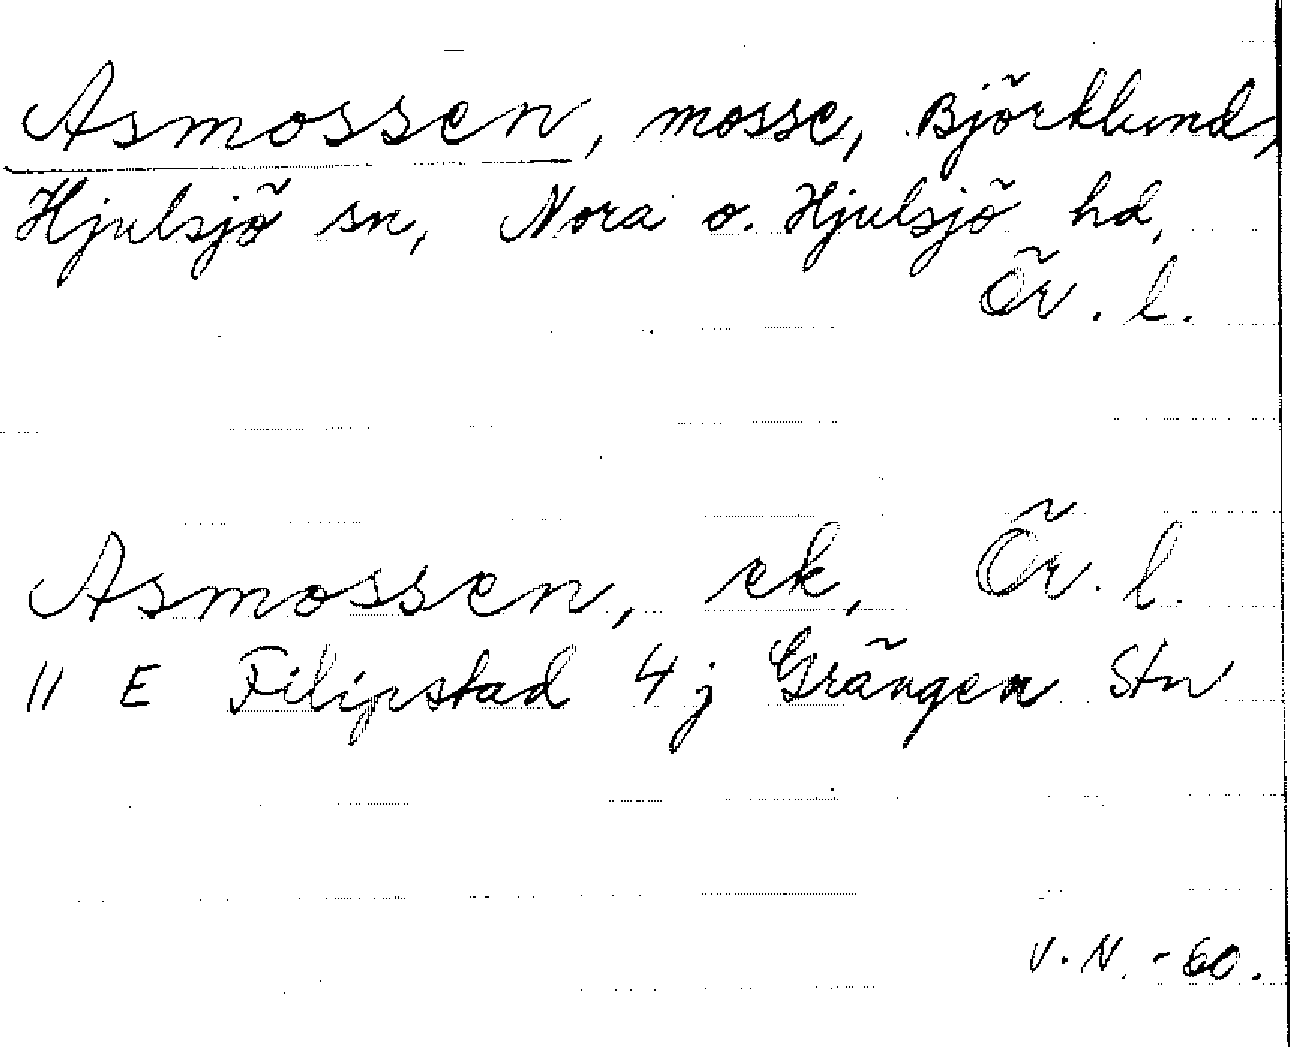 Asmossen, mosse, Björklund,
Hjulsjö sn, Nora o. Hjulsjö hd,
Ör. l.
Asmossen, ek, Ör. l.
11 E Filipstad 4 j Grängen Stn
V. N. -60.